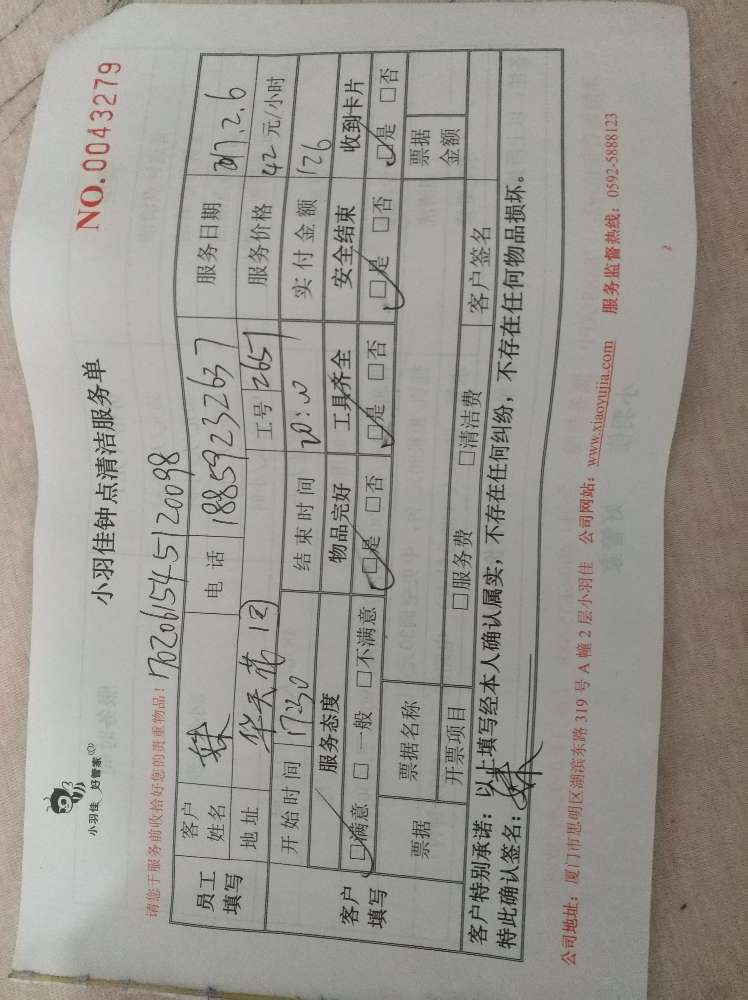 小羽佳 好管家
小羽佳钟点清洁服务单
NO.0043279
请您于服务前收拾好您的贵重物品!
员工填写 客户姓名 电话 18859232637 服务日期 2017.2.6
地址 工号 2657 服务价格 42元/小时
客户填写 开始时间 1730 结束时间 20:00 实付金额 126
服务态度 物品完好 工具齐全 安全结束 收到卡片
□满意 □一般 □不满意 □是 □否 □是 □否 □是 □否 □是 □否
票据 票据名称 票据金额
开票项目 □服务费 □清洁费 客户签名
客户特别承诺:以上填写经本人确认属实,不存在任何纠纷,不存在任何物品损坏。
特此确认签名:
公司地址:厦门市思明区湖滨东路319号A幢2层小羽佳 公司网站:www.xiaoyujia.com 服务监督热线:0592-5888123